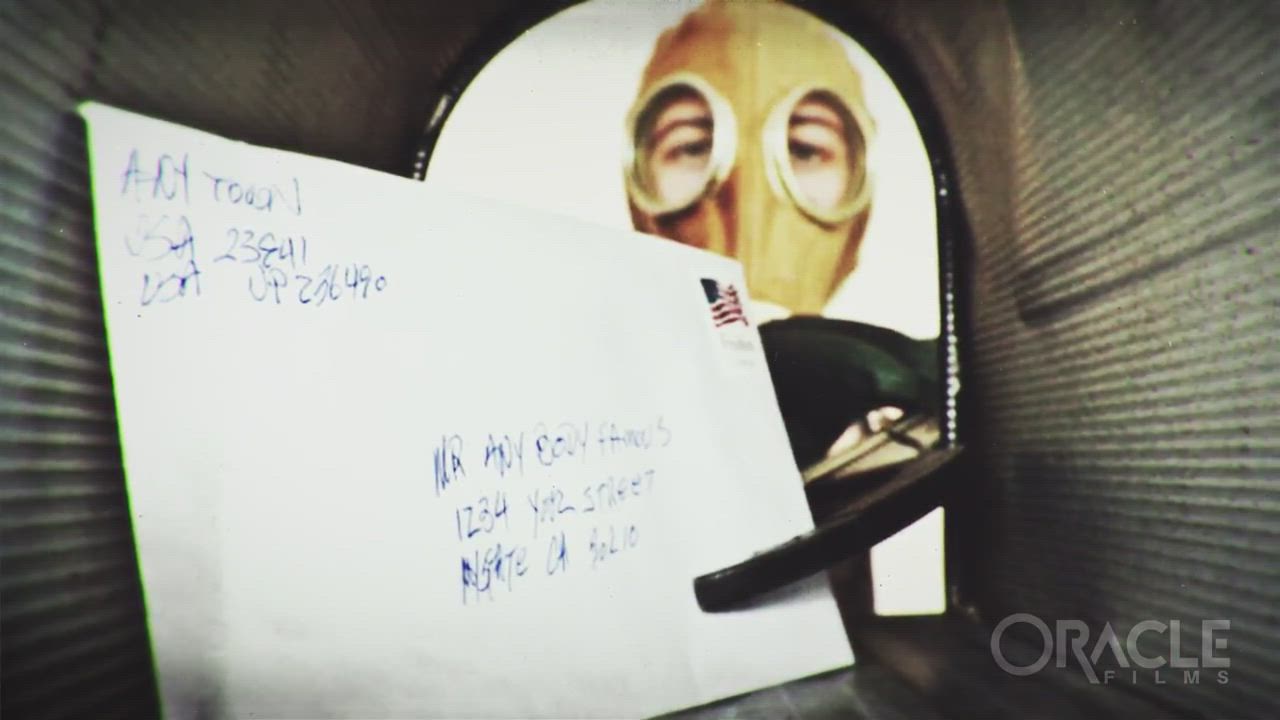 ANY TOWN
USA 23841
USA
MR ANY BODY FAMOUS
1234 YOUR STREET
CA
ORACLE
FILMS